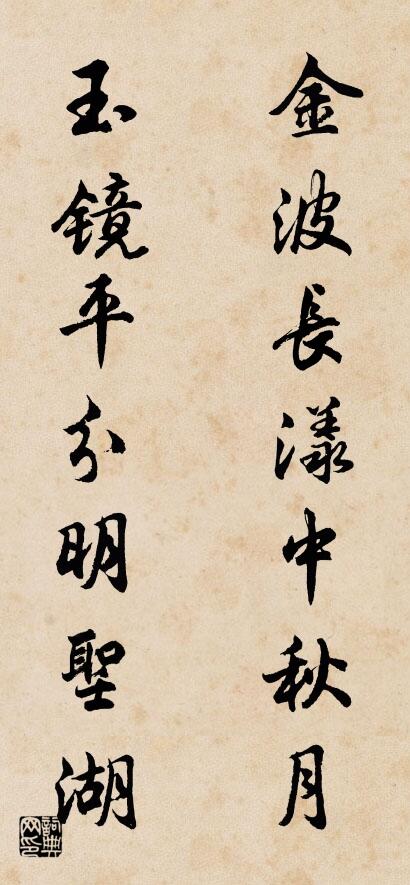 金波長漾中秋月
玉鏡平分明聖湖
詞典网印